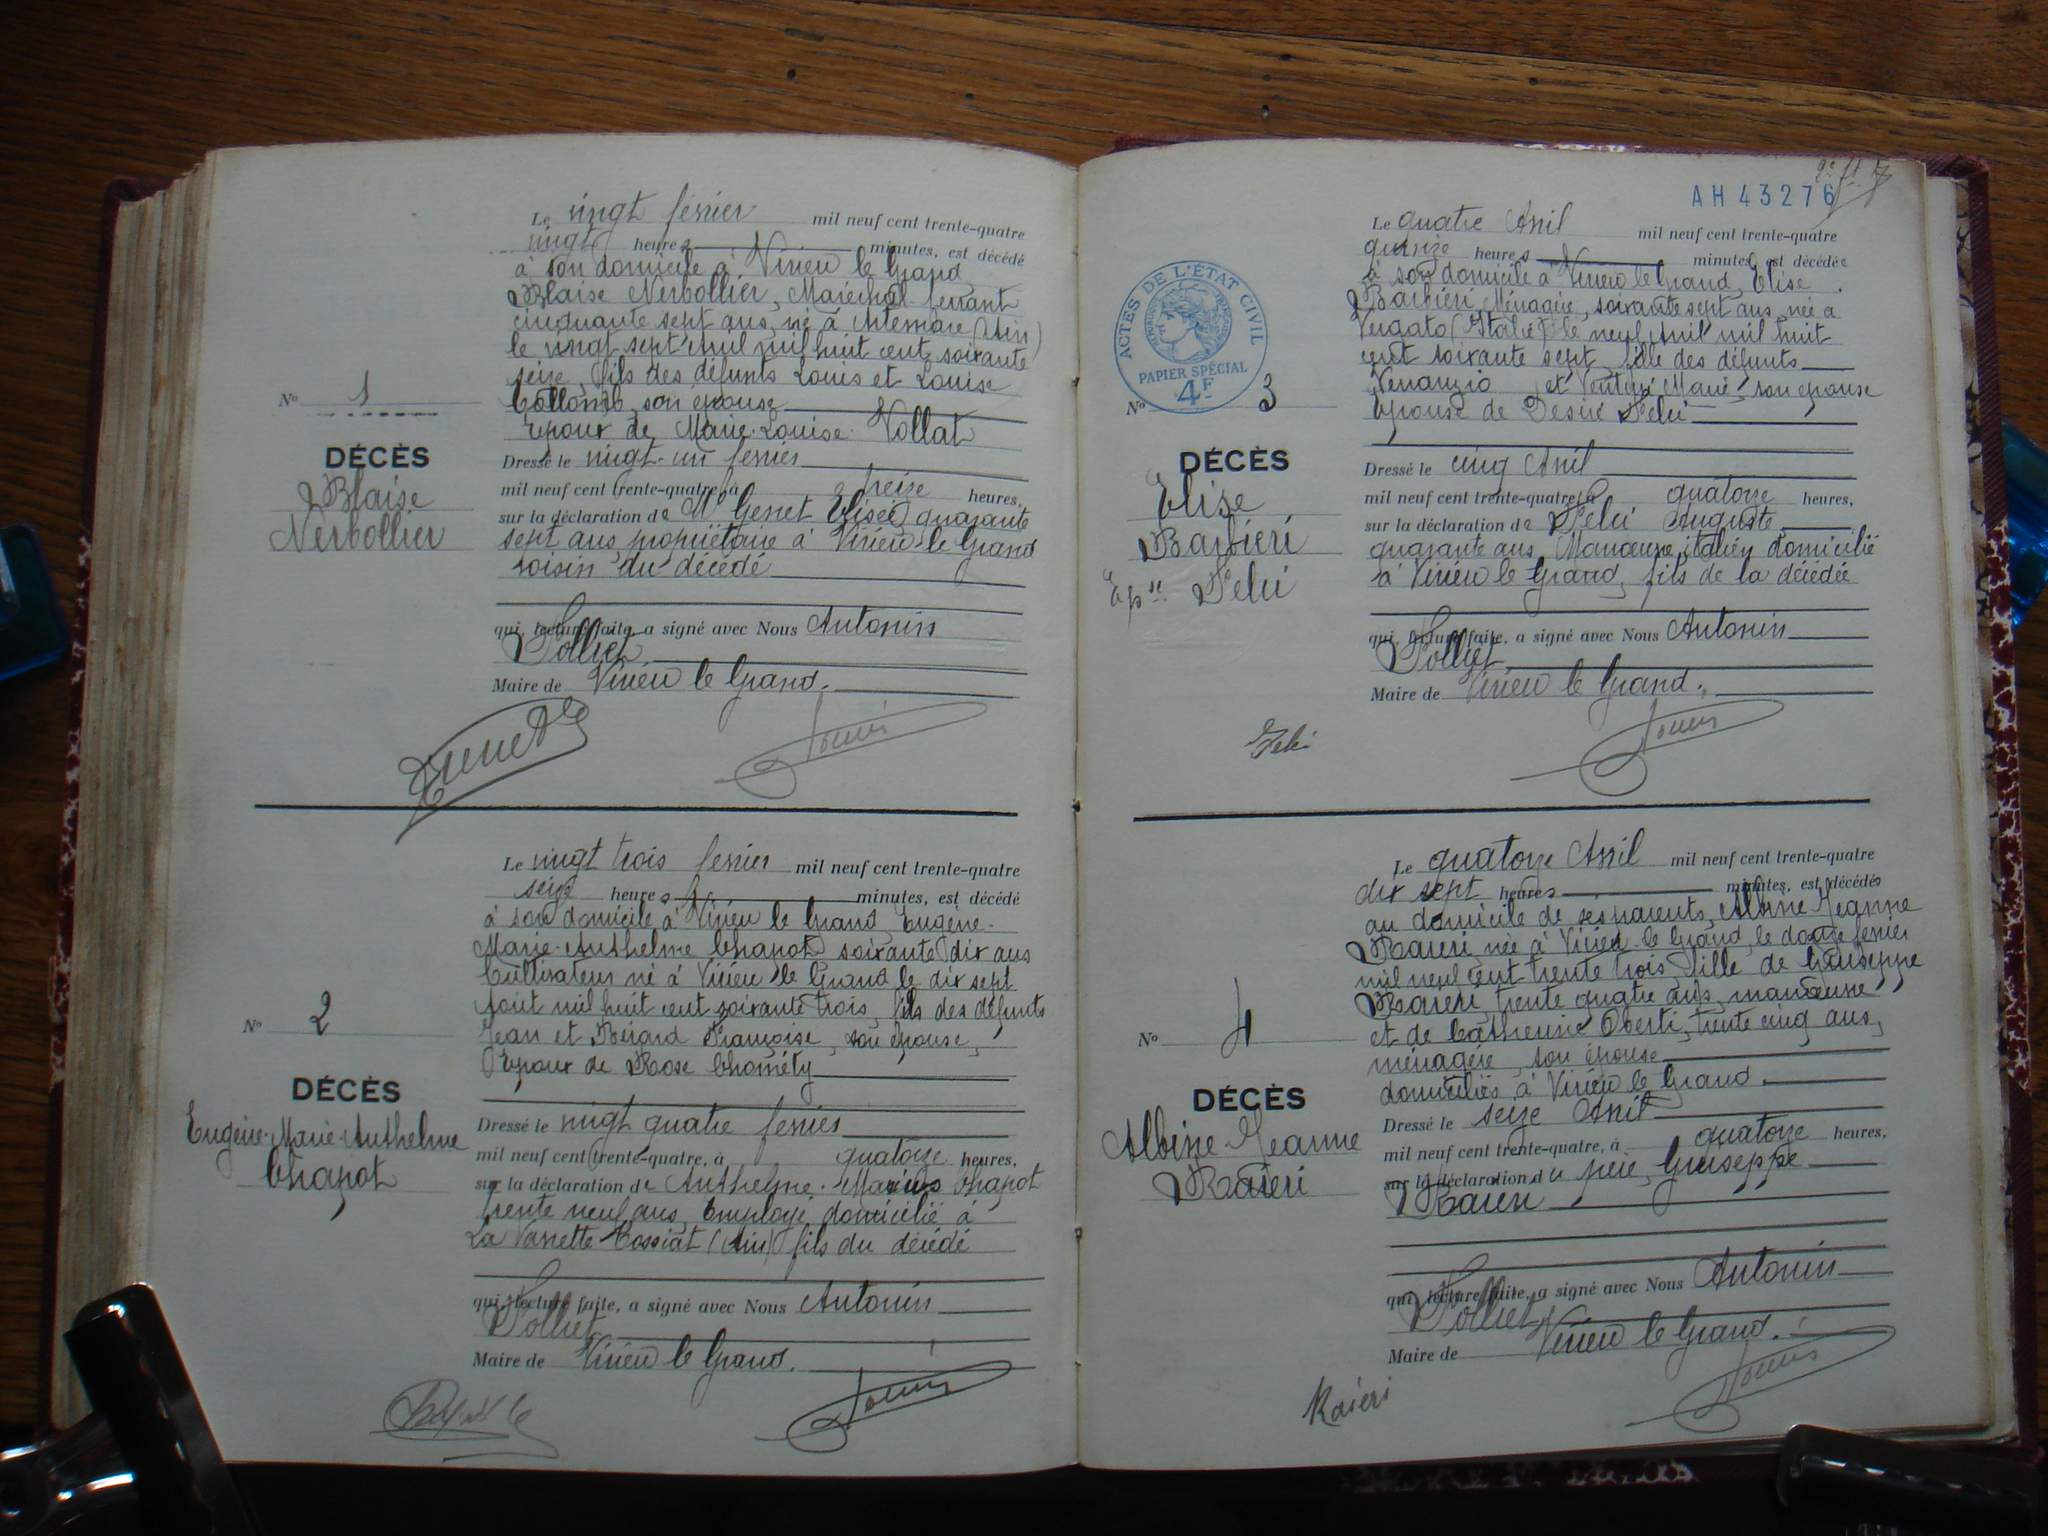 Le vingt février mil neuf cent trente-quatre
vingt heures minutes, est décédé
à son domicile à Virieu le Grand
Blaise Nerbollier, Maréchal ferrant
cinquante sept ans, né à Artemare (Ain)
le vingt sept Avril mil huit cent soixante
seize, fils des défunts Louis et Louise
Collomb, son épouse
Epoux de Marie-Louise Vollat
No 1
DÉCÈS
Blaise
Nerbollier
Dressé le vingt-un février
mil neuf cent trente-quatre, à seize heures,
sur la déclaration de Mr Genet Elisée, quarante
sept ans, propriétaire à Virieu-le-Grand
voisin du décédé
qui, lecture faite, a signé avec Nous Antonin
Polliet
Maire de Virieu le Grand.
Le vingt trois février mil neuf cent trente-quatre
seize heures minutes, est décédé
à son domicile à Virieu le Grand, Eugène-
Marie-Anthelme Chapot, soixante dix ans
Cultivateur né à Virieu le Grand le dix sept
Août mil huit cent soixante trois, fils des défunts
Jean et Bérard Françoise, son épouse,
Epoux de Rose Chométy
No 2
DÉCÈS
Eugène-Marie-Anthelme
Chapot
Dressé le vingt quatre février
mil neuf cent trente-quatre, à quatorze heures,
sur la déclaration de Anthelme-Marius Chapot
trente neuf ans, Employé, domicilié à
La Vavrette Tossiat (Ain) fils du décédé
qui, lecture faite, a signé avec Nous Antonin
Polliet
Maire de Virieu le Grand.
AH 43276
ACTES DE L'ÉTAT CIVIL
PAPIER SPÉCIAL
4F
Le quatre Avril mil neuf cent trente-quatre
quinze heures minutes, est décédée
à son domicile à Virieu le Grand, Elise
Barbieri, Ménagère, soixante sept ans, née à
Vergato (Italie) le neuf Avril mil huit
cent soixante sept, fille des défunts
Venanzio et Venturi Marie, son épouse
Epouse de Désiré Felci
No 3
DÉCÈS
Elise
Barbieri
Epse Felci
Dressé le cinq Avril
mil neuf cent trente-quatre, à quatorze heures,
sur la déclaration de Felci Auguste,
quarante ans, Manœuvre, italien domicilié
à Virieu le Grand, fils de la décédée
qui, lecture faite, a signé avec Nous Antonin
Polliet
Maire de Virieu le Grand.
Felci
Le quatorze Avril mil neuf cent trente-quatre
dix sept heures minutes, est décédée
au domicile de ses parents, Albine Jeanne
Raieri, née à Virieu-le-Grand, le douze février
mil neuf cent trente trois, fille de Giuseppe
Raieri, trente quatre ans, manœuvre
et de Catherine Oberti, trente cinq ans,
ménagère, son épouse
domiciliés à Virieu le Grand.
No 4
DÉCÈS
Albine Jeanne
Raieri
Dressé le seize Avril
mil neuf cent trente-quatre, à quatorze heures,
sur la déclaration du père, Giuseppe
Raieri
qui, lecture faite, a signé avec Nous Antonin
Polliet
Maire de Virieu le Grand.
Raieri